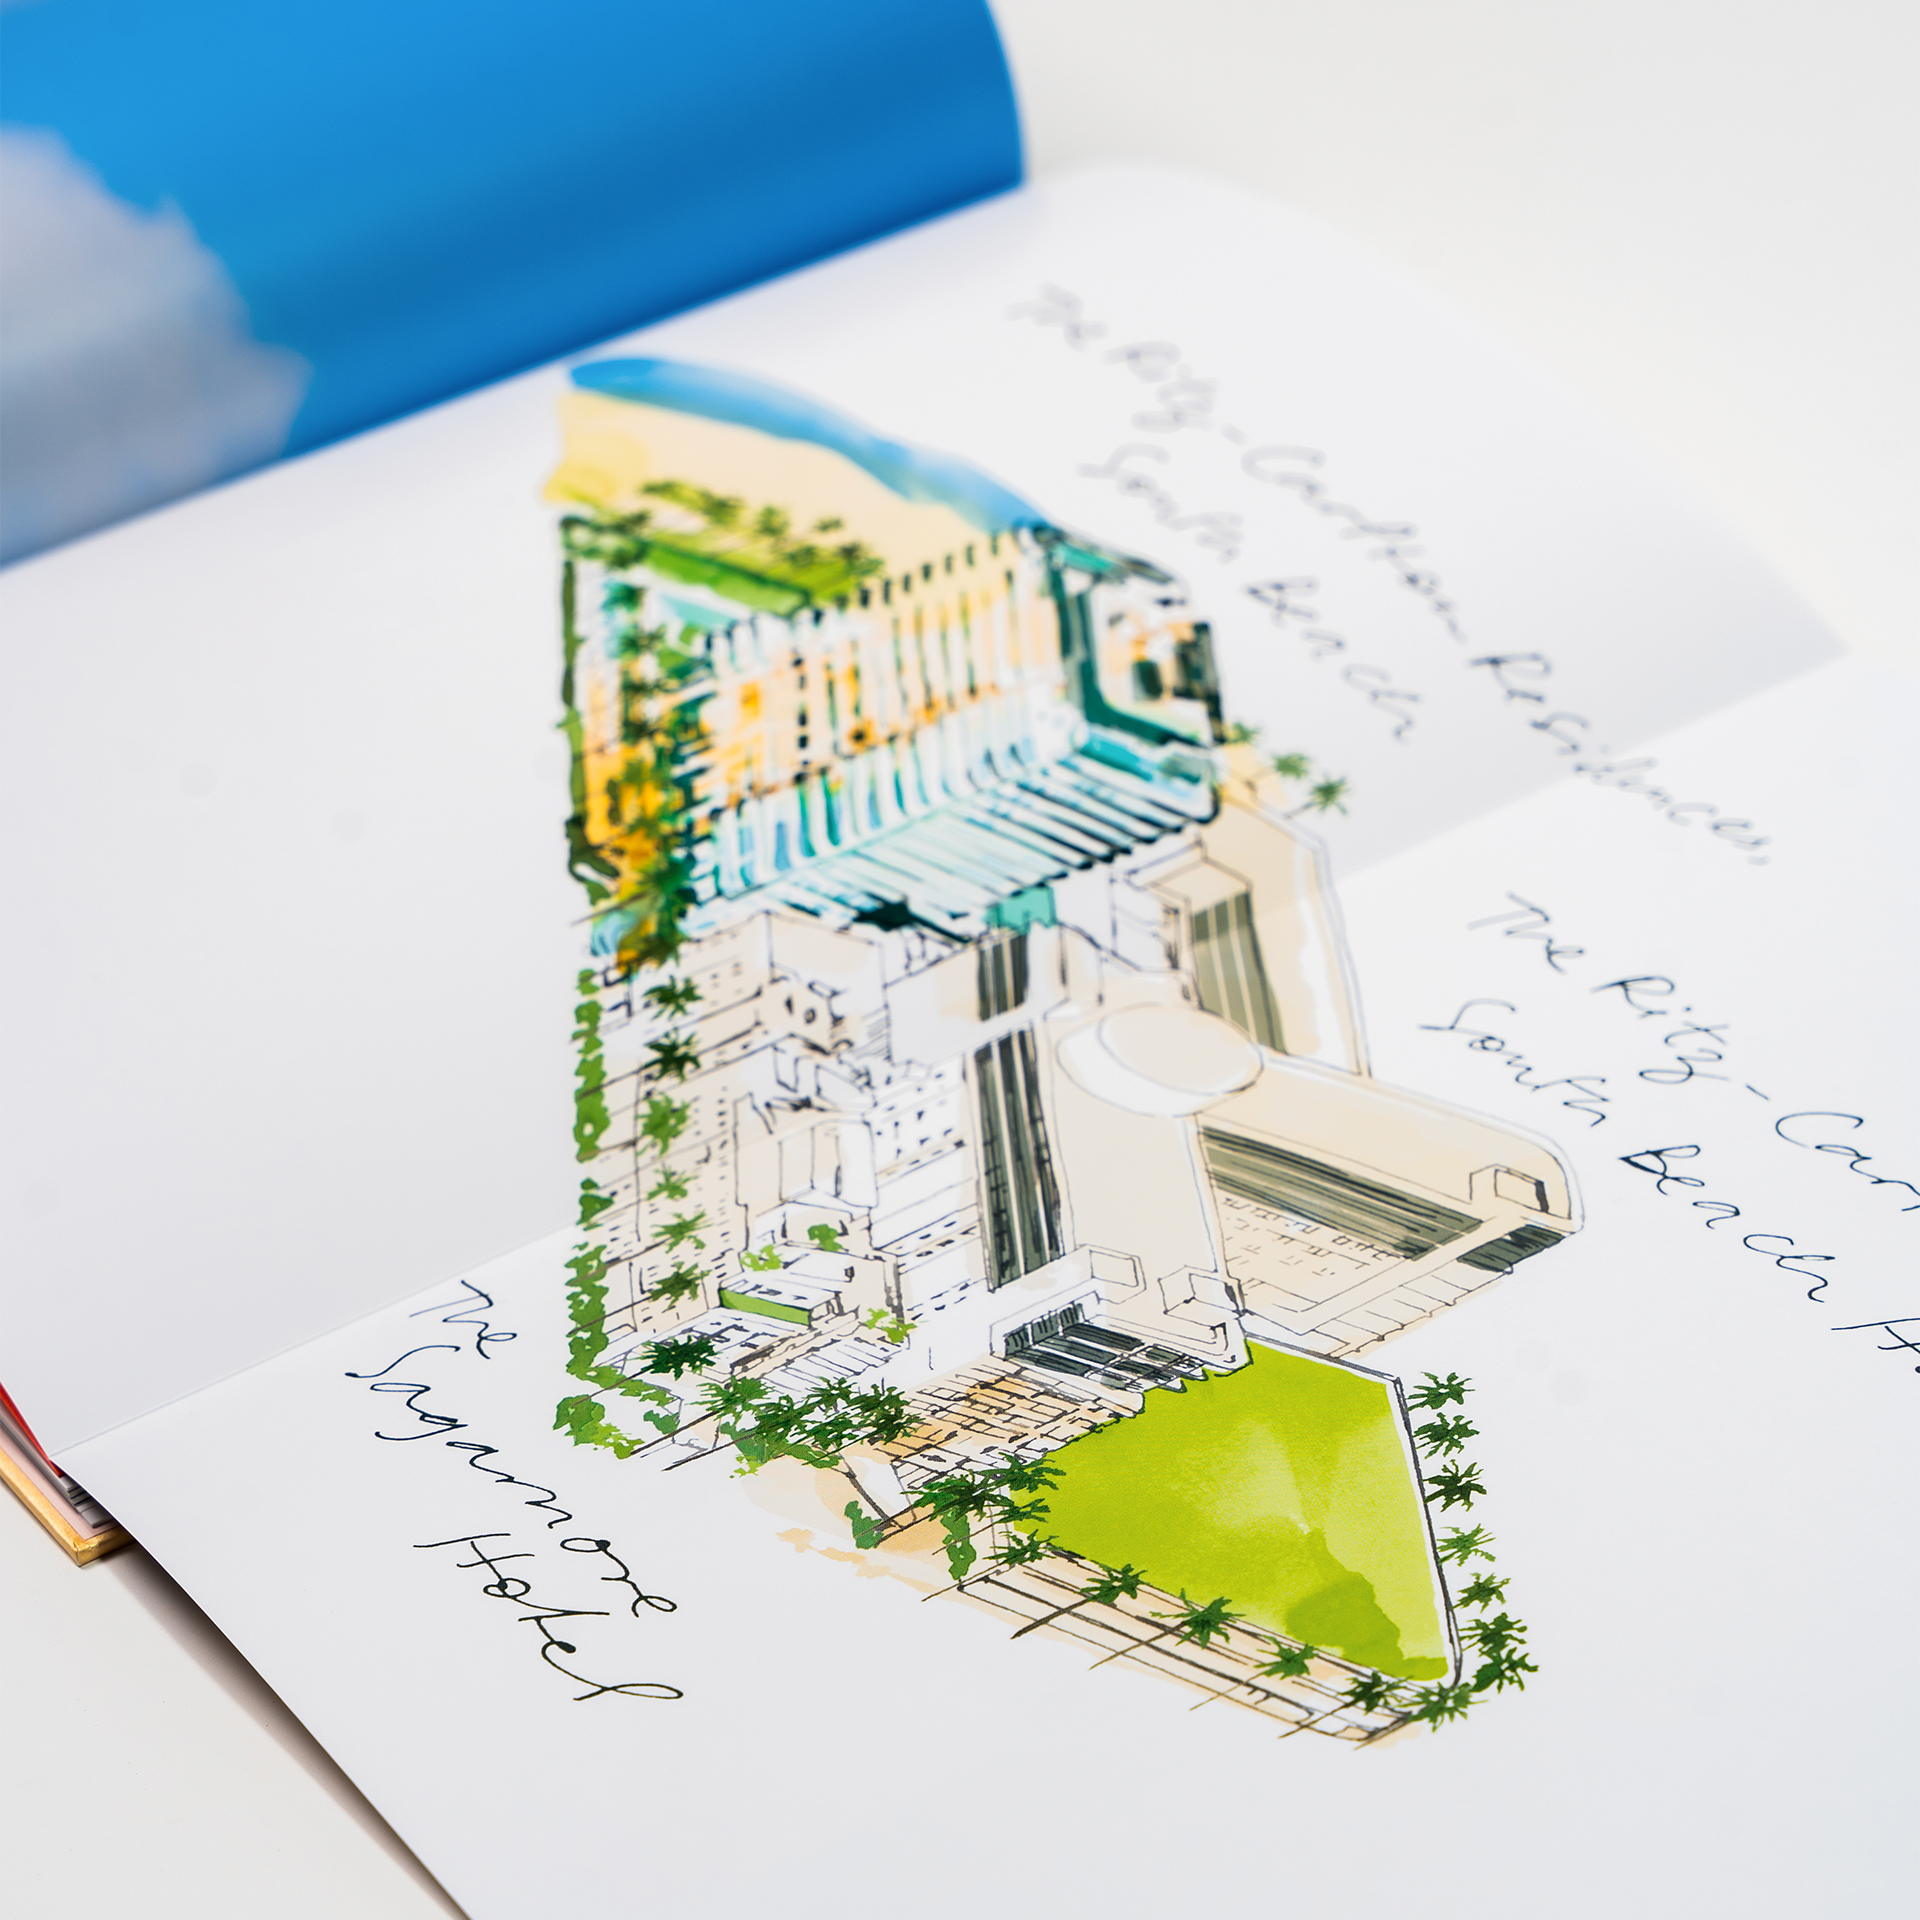 The Ritz-Carlton Residences,
South Beach
The Ritz-Car
South Beach H
The
Sagamore
Hotel